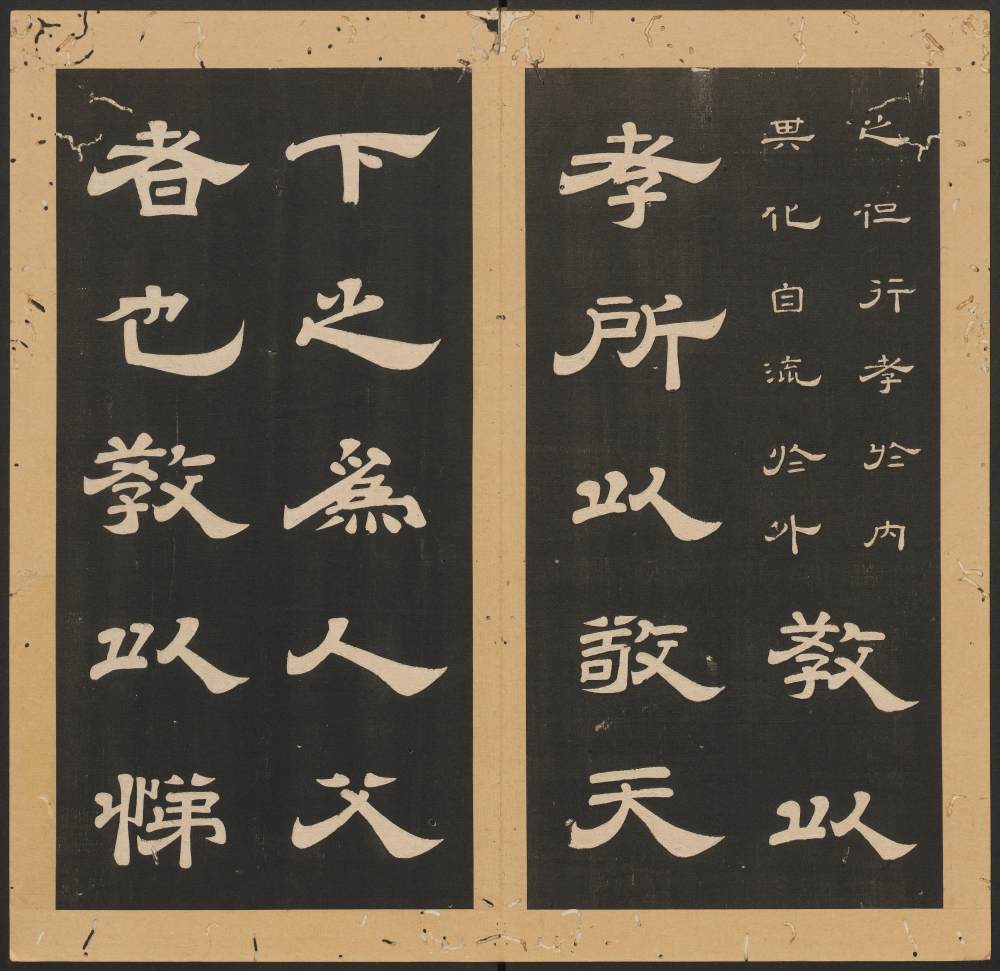 之但行孝於內
其化自流於外
教以
孝所以敬天
下之為人父
者也教以悌